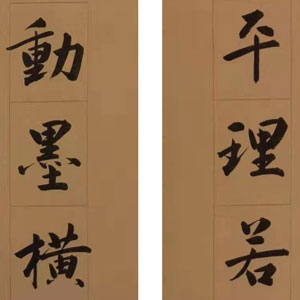 平理若
動墨橫